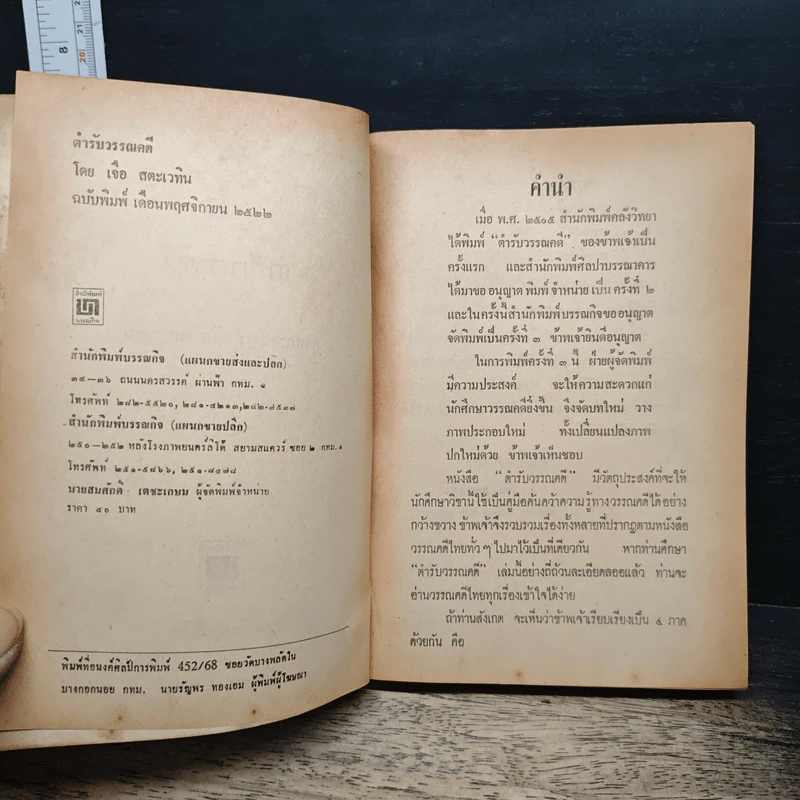 ตำรับวรรณคดี
โดย เจือ สตะเวทิน
ฉบับพิมพ์ เดือนพฤศจิกายน ๒๕๒๒
สำนักพิมพ์
บรรณกิจ
สำนักพิมพ์บรรณกิจ (แผนกขายส่งและปลีก)
๓๔—๓๖ ถนนนครสวรรค์ ผ่านฟ้า กทม. ๑
โทรศัพท์ ๒๘๒-๕๕๒๐, ๒๘๑-๔๒๑๓,๒๘๒-๗๕๓๗
สำนักพิมพ์บรรณกิจ (แผนกขายปลีก)
๒๕๐—๒๕๒ หลังโรงภาพยนตร์ลิโด้ สยามสแควร์ ซอย ๒ กทม. ๑
โทรศัพท์ ๒๕๑-๕๘๖๖, ๒๕๑-๘๔๗๘
นายสมศักดิ์ เตชะเกษม ผู้จัดพิมพ์จำหน่าย
ราคา ๔๐ บาท
พิมพ์ที่อนงค์ศิลป์การพิมพ์ 452/68 ซอยวัดบางพลัดใน
บางกอกน้อย กทม. นายธัญพร ทองเอม ผู้พิมพ์ผู้โฆษณา
คำนำ
เมื่อ พ.ศ. ๒๕๐๕ สำนักพิมพ์คลังวิทยา
ได้พิมพ์ “ตำรับวรรณคดี” ของข้าพเจ้าเป็น
ครั้งแรก และสำนักพิมพ์ศิลปาบรรณาคาร
ได้มาขอ อนุญาต พิมพ์ จำหน่าย เป็น ครั้งที่ ๒
และในครั้งนี้สำนักพิมพ์บรรณกิจขออนุญาต
จัดพิมพ์เป็นครั้งที่ ๓ ข้าพเจ้ายินดีอนุญาต
ในการพิมพ์ครั้งที่ ๓ นี้ ฝ่ายผู้จัดพิมพ์
มีความประสงค์ จะให้ความสะดวกแก่
นักศึกษาวรรณคดียิ่งขึ้น จึงจัดบทใหม่ วาง
ภาพประกอบใหม่ ทั้งเปลี่ยนแปลงภาพ
ปกใหม่ด้วย ข้าพเจ้าเห็นชอบ
หนังสือ “ตำรับวรรณคดี” มีวัตถุประสงค์ที่จะให้
นักศึกษาวิชานี้ใช้เป็นคู่มือค้นคว้าความรู้ทางวรรณคดีได้อย่าง
กว้างขวาง ข้าพเจ้าจึงรวบรวมเรื่องทั้งหลายที่ปรากฏตามหนังสือ
วรรณคดีไทยทั่ว ๆ ไปมาไว้เป็นที่เดียวกัน หากท่านศึกษา
“ตำรับวรรณคดี” เล่มนี้อย่างถี่ถ้วนละเอียดลออแล้ว ท่านจะ
อ่านวรรณคดีไทยทุกเรื่องเข้าใจได้ง่าย
ถ้าท่านสังเกต จะเห็นว่าข้าพเจ้าเรียบเรียงเป็น ๔ ภาค
ด้วยกัน คือ
8
20
21